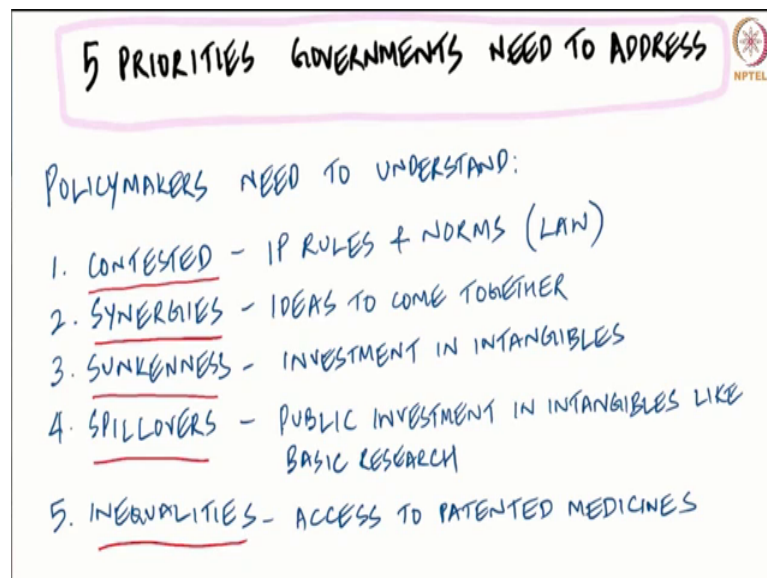 5 PRIORITIES GOVERNMENTS NEED TO ADDRESS
NPTEL
POLICYMAKERS NEED TO UNDERSTAND:
1. CONTESTED - IP RULES & NORMS (LAW)
2. SYNERGIES - IDEAS TO COME TOGETHER
3. SUNKENNESS - INVESTMENT IN INTANGIBLES
4. SPILLOVERS - PUBLIC INVESTMENT IN INTANGIBLES LIKE
BASIC RESEARCH
5. INEQUALITIES - ACCESS TO PATENTED MEDICINES